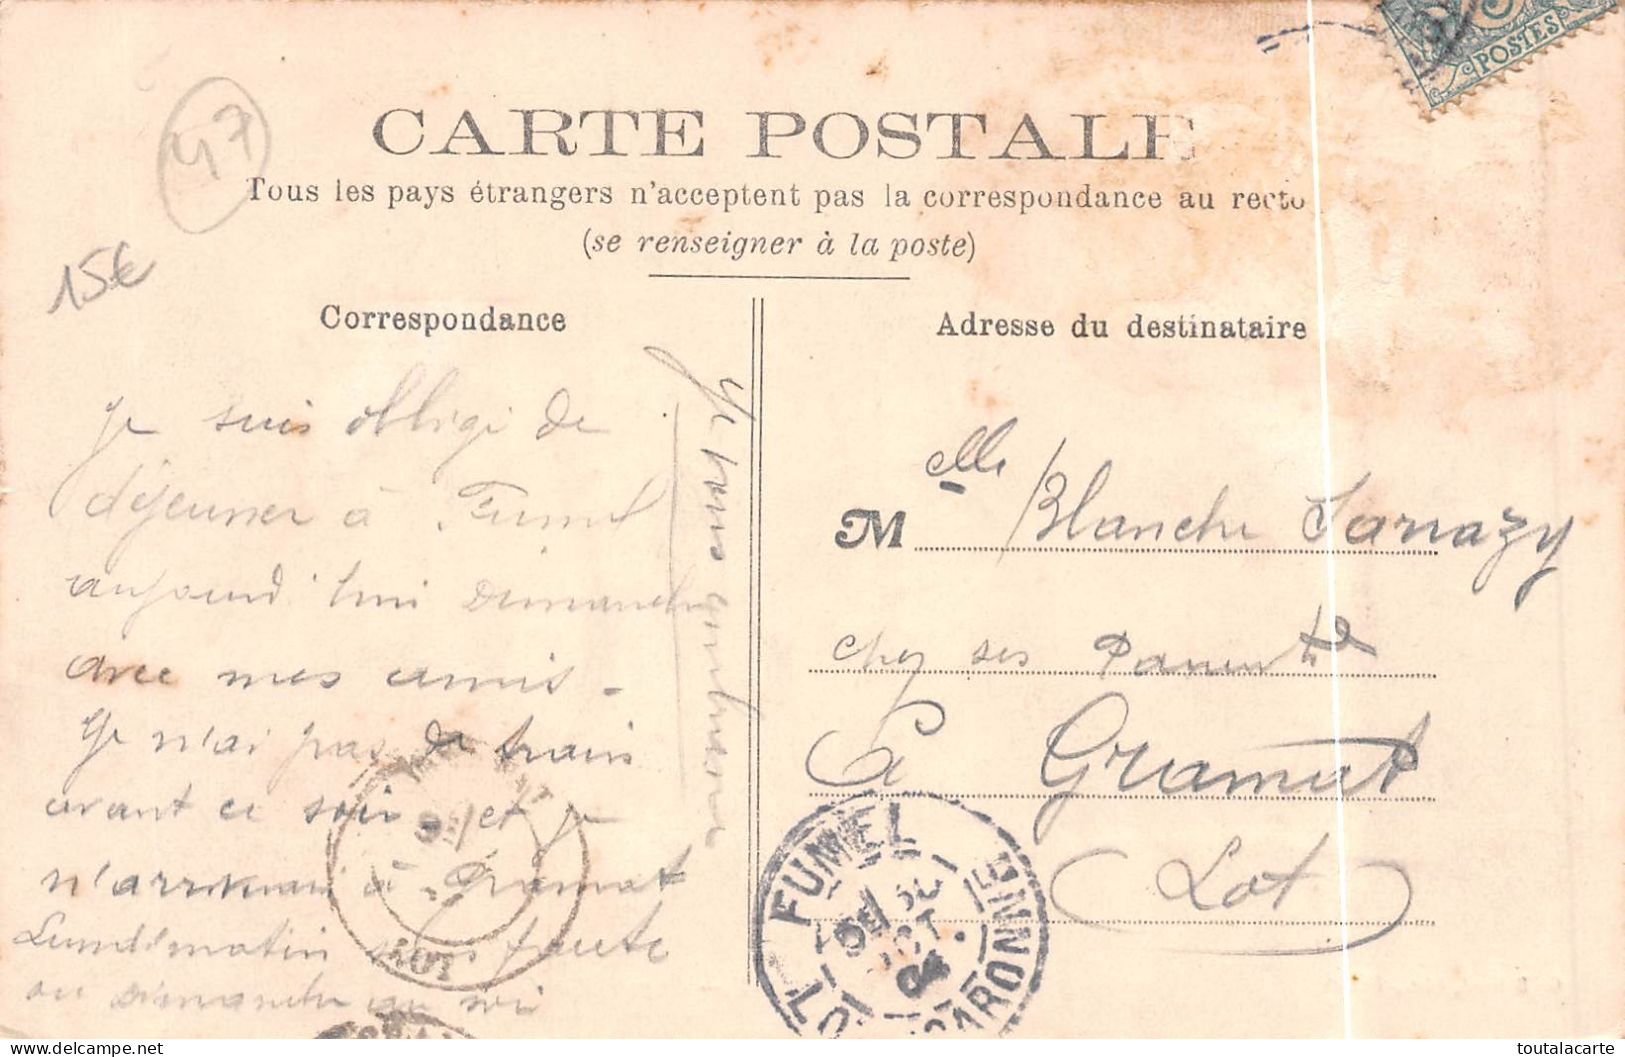 POSTES
47
CARTE POSTALE
Tous les pays étrangers n'acceptent pas la correspondance au recto
(se renseigner à la poste)
15€
Correspondance
Je suis obligé de
déjeuner à Fumel
aujourd'hui Dimanche
avec mes amis -
Je n'ai pas de train
avant ce soir - et je
n'arriverai à Gramat
Lundi matin sans faute
ou Dimanche au soir
Je vous embrasse
Adresse du destinataire
Melle Blanche Sarrazy
chez ses Parents
à Gramat
Lot
FUMEL
OCT.
04
LOT-ET-GARONNE
LOT
delcampe.net
toutalacarte